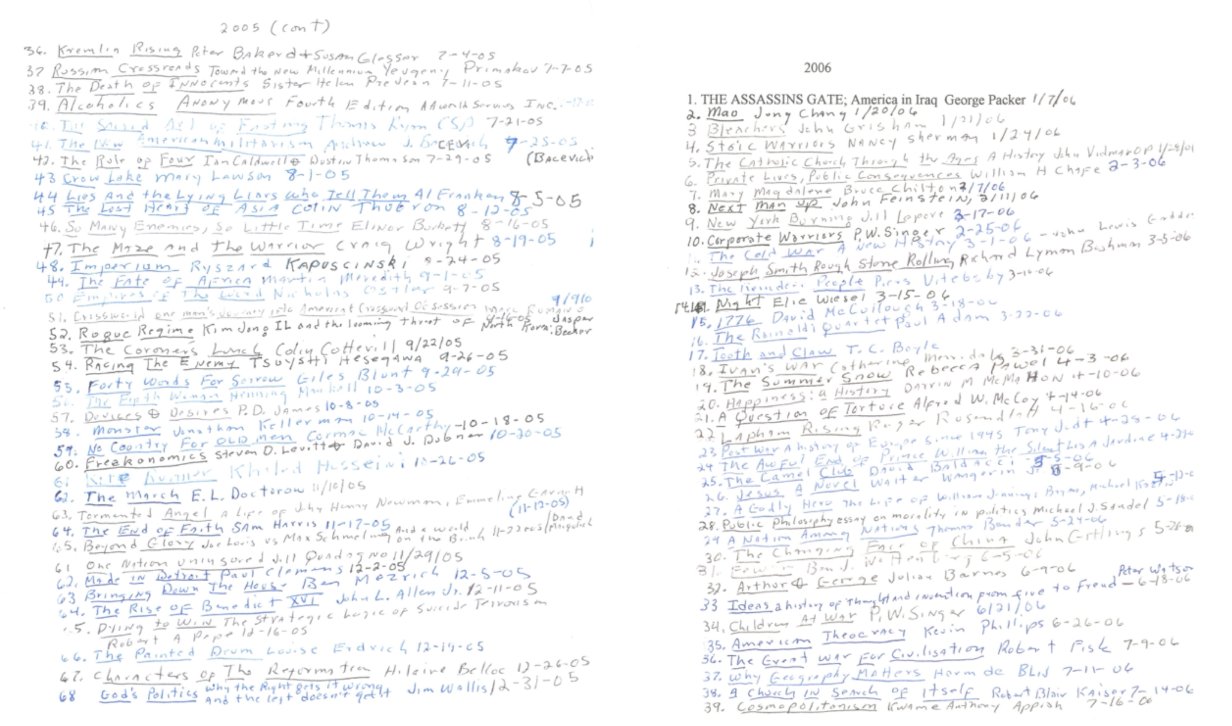 2005 (cont)
36. Kremlin Rising Peter Baker d + Susan Glasser 7-4-05
37 Russian Crossroads Toward the New Millennium Yevgeny Primakov 7-7-05
38. The Death of Innocents Sister Helen Prejean 7-11-05
39. Alcoholics Anonymous Fourth Edition AA World Services Inc.
The Sacred Art of Fasting Thomas Ryan CSP 7-21-05
41. The New American Militarism Andrew J. 7-25-05
42. The Rule of Four Ian Caldwell & Dustin Thomason 7-29-05 (Bacevich)
43 Crow Lake Mary Lawson 8-1-05
44 Lies And the Lying Liars Who Tell Them Al Franken 8-5-05
45 The Lost Heart of Asia Colin Thubron 8-12-05
46. So Many Enemies, So Little Time Elinor Burkett 8-16-05
47. The Maze and the Warrior Craig Wright 8-19-05
48. Imperium Ryszard Kapuscinski 8-24-05
44. The Fate of Africa Martin Meredith 9-1-05
50 Empires of The Word Nicholas Ostler 9-7-05
51. Crossworld one man's journey into America's Crossword Obsession Marc Romano 9/9/0
52. Rogue Regime Kim Jong IL and the looming threat of North Korea: Jasper Becker
53. The Coroners Lunch Colin Cotterill 9/22/05
54. Racing The Enemy Tsuyshi Hesegawa 9-26-05
55. Forty Words For Sorrow Giles Blunt 9-29-05
The Fifth Woman Henning Mankell 10-3-05
57. Devices & Desires P.D. James 10-8-05
58. Monster Jonathan Kellerman 10-14-05
59. No Country For OLD men Cormac McCarthy -10-18-05
60. Freakonomics Steven D. Levitt & David J. Dubner 10-20-05
61 Kite Runner Khaled Hosseini 10-26-05
62. The March E.L. Doctorow 11/10/05
63. Tormented Angel A life of John Henry Newman, Emmeline Garnett (11-12-05)
64. The End of Faith SAM Harris 11-17-05
65. Beyond Glory Joe Louis vs Max Schmeling And a World on the Brink 11-22-05 / David Margolick
61 One Nation Uninsured Jill Quadagno 11/29/05
62. Made in Detroit Paul Clemens 12-2-05
63 Bringing Down The House Ben Mezrich 12-5-05
64. The Rise of Benedict XVI John L. Allen Jr. 12-11-05
65. Dying to Win The Strategic Logic of Suicide Terrorism
Robert A Pape 12-16-05
66. The Painted Drum Louise Erdrich 12-19-05
67. Characters of The Reformation Hilaire Belloc 12-26-05
68 God's Politics Why the Right gets it wrong And the left doesn't get it Jim Wallis 12-31-05
2006
1. THE ASSASSINS GATE; America in Iraq George Packer 1/7/06
2. Mao Jung Chang 1/20/06
3 Bleachers John Grisham 1/21/06
4. Stoic Warriors Nancy Sherman 1/24/06
5. The Catholic Church Through the Ages A History John Vidmar OP
6. Private Lives, Public Consequences William H Chafe 2-3-06
7. Mary Magdalene Bruce Chilton 2/7/06
8. Next Man Up John Feinstein, 2/11/06
9. New York Burning Jill Lepore 2-17-06
10. Corporate Warriors P.W. Singer 2-25-06
The Cold War A New History 3-1-06 - John Lewis Gaddi
12. Joseph Smith Rough Stone Rolling Richard Lyman Bushman 3-3-06
13. The Reindeer People Piers Vitebsky 3-10-06
14. Night Elie Wiesel 3-15-06
15. 1776 David McCullough 3-18-06
16. The Rinaldi Quartet Paul Adam 3-22-06
17. Tooth and Claw T.C. Boyle
18. Ivan's War Catherine Merridale 3-31-06
19. The Summer Snow Rebecca Pawel 4-3-06
20. Happiness: a History Darrin M McMaHON 4-10-06
21. A Question of Torture Alfred W. McCoy 4-14-06
22 Lapham Rising Roger Rosenblatt 4-16-06
23 Post War A history of Europe since 1945 Tony Judt 4-25-06
24 The Awful End of Prince William the Silent Lisa Jardine
25. The Camel Club David Baldacci 5-5-06
26. Jesus A Novel Walter Wangerin Jr 5-9-06
27. A Godly Hero The Life of William Jennings Bryan, Michael Kazin
28. Public Philosophy essay on morality in politics Michael J. Sandel 5-18-0
29 A Nation Among Nations Thomas Bender 5-24-06
30. The Changing Face of China John Gittings 5-28-0
31. Ben J. Wattenberg 6-5-06
32. Arthur & George Julian Barnes 6-9-06
33 Ideas a history of thought and invention from fire to Freud - Peter Watson 6-18-06
34. Children At War P.W. Singer 6/21/06
35. American Theocracy Kevin Phillips 6-26-06
36. The Great War For Civilisation Robert Fisk 7-9-06
37. Why Geography Matters Harm de Blij 7-11-06
38. A Church In Search of Itself Robert Blair Kaiser 7-14-06
39. Cosmopolitanism Kwame Anthony Appiah 7-16-06